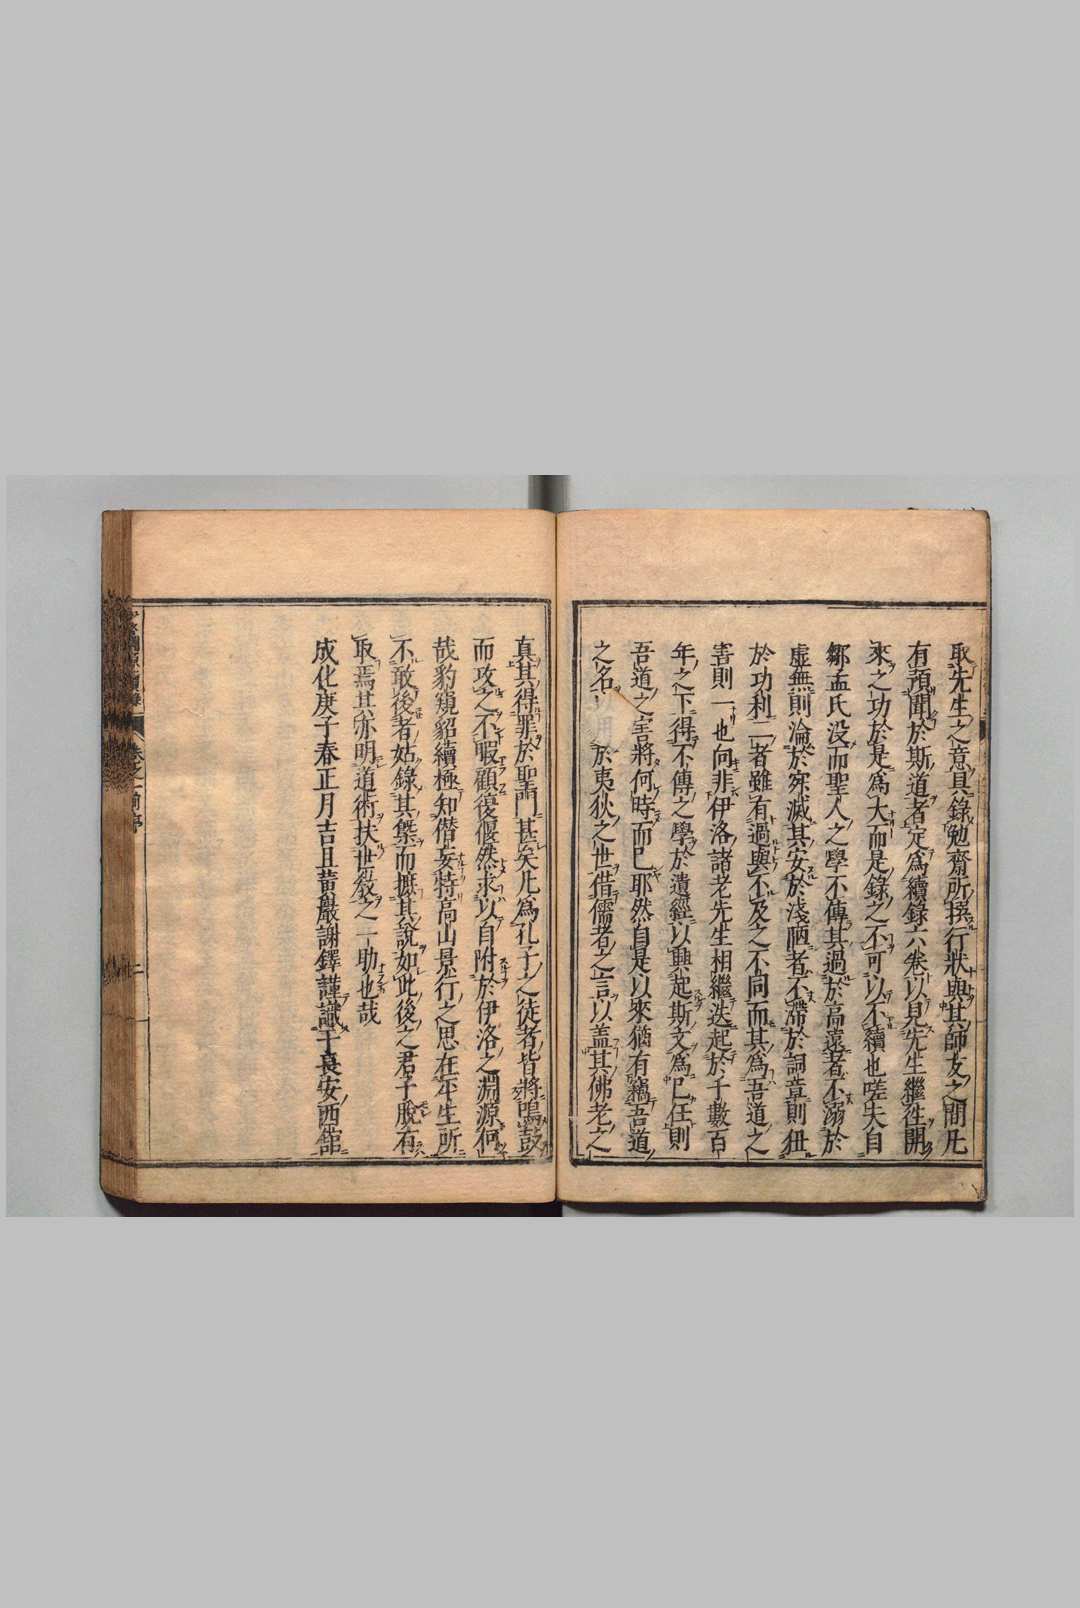 取先生之意具錄勉齋所撰行狀與其師友之間凡
有預聞於斯道者定爲續錄六卷以見先生繼徃開
來之功於是爲大而是錄之不可以不續也嗟夫自
鄒孟氏没而聖人之學不傳其過於高遠者不溺於
虚無則淪於寂滅其安於淺陋者不滯於詞章則狃
於功利二者雖有過與不及之不同而其爲吾道之
害則一也向非伊洛諸老先生相繼迭起於千數百
年之下得不傳之學於遺經以興起斯文爲己任則
吾道之害將何時而已耶然自是以來猶有竊吾道
之名以用於夷狄之世借儒者之言以盖其佛老之
真其得罪於聖門甚矣凡爲孔子之徒者皆將鳴鼓
而攻之不暇顧復偃然求以自附於伊洛之淵源何
哉豹窺貂續極知僭妄特高山景行之思在平生所
不敢後者姑錄其槩而摭其說如此後之君子脫有
取焉其亦明道術扶世敎之一助也哉
成化庚子春正月吉旦黄巖謝鐸謹識于袁安西舘